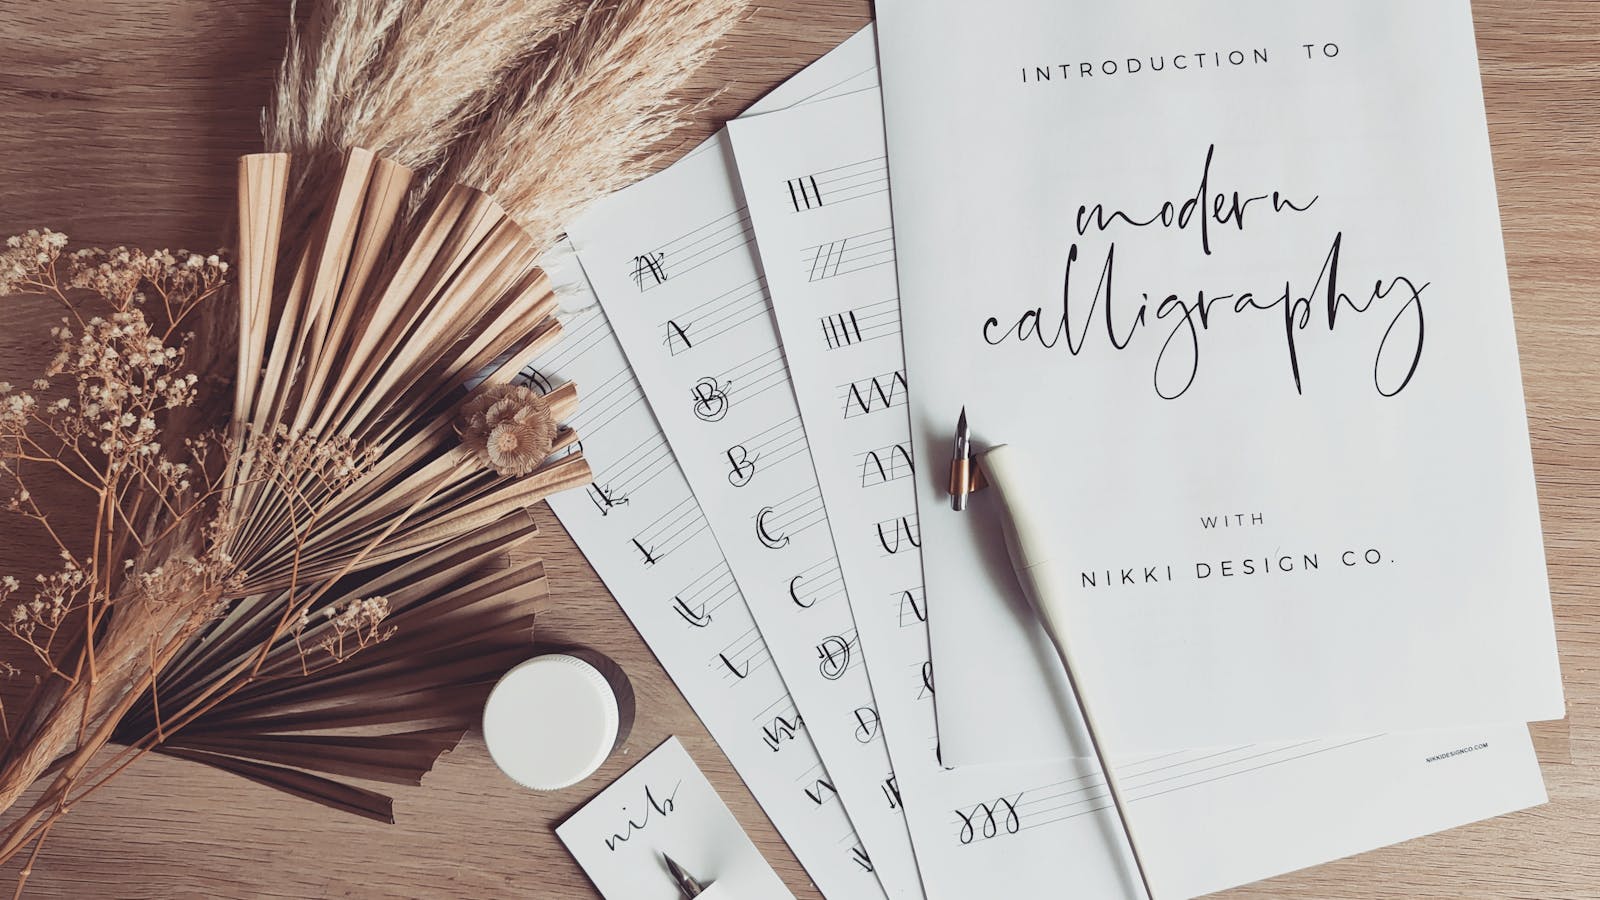 INTRODUCTION TO
modern
calligraphy
WITH
NIKKI DESIGN CO.
NIKKIDESIGNCO.COM
nib
A
A
B
B
C
C
D
D